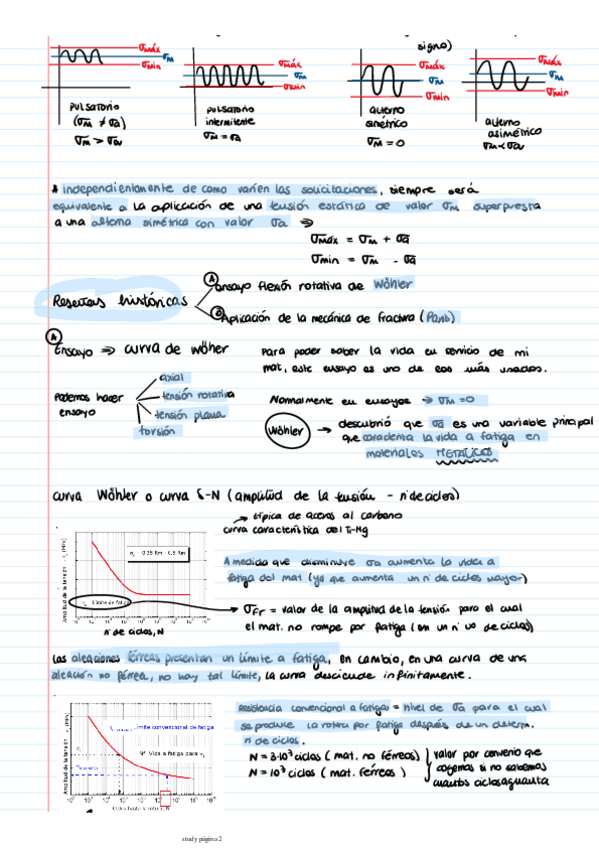 signo)
σmáx
σm
σmin
σmáx
σm
σmin
σmáx
σm
σmin
σmáx
σm
σmin
pulsatorio
(σm ≠ σa)
σm > σa
pulsatorio
intermitente
σm = σa
alterno
simétrico
σm = 0
alterno
asimétrico
σm < σa
independientemente de como varíen las solicitaciones, siempre será
equivalente a la aplicación de una tensión estática de valor σm superpuesta
a una alterna simétrica con valor σa ⇒
σmáx = σm + σa
σmin = σm - σa
Reseñas históricas
A Ensayo flexión rotativa de Wöhler
Aplicación de la mecánica de fractura (Paris)
A
Ensayo ⇒ curva de wöher
Para poder saber la vida en servicio de mi
mat, este ensayo es uno de los más usados.
Podemos hacer
ensayo
axial
tensión rotativa
tensión plana
torsión
Normalmente en ensayos → σm = 0
Wöhler → descubrió que σa es una variable principal
que caracteriza la vida a fatiga en
materiales METÁLICOS
curva Wöhler o curva S-N (amplitud de la tensión - nº de ciclos)
→ típica de aceros al carbono
curva característica del Ti-Mg
Amplitud de la tensión (MPa)
0.35 Rm - 0.5 Rm
Límite de fatiga
Nº de ciclos, N
A medida que disminuye σa aumenta la vida a
fatiga del mat (ya que aumenta un nº de ciclos mayor)
σFr = valor de la amplitud de la tensión para el cual
el mat. no rompe por fatiga (en un nº ∞ de ciclos)
Las aleaciones férreas presentan un límite a fatiga, en cambio, en una curva de una
aleación no férrea, no hay tal límite, la curva desciende infinitamente.
Amplitud de la tensión (MPa)
límite convencional de fatiga
Nº Vida a fatiga para
Ciclos hasta la rotura, N
Resistencia convencional a fatiga = nivel de σa para el cual
se produce la rotura por fatiga después de un determ.
nº de ciclos.
N = 3·10³ ciclos (mat. no férreos)
N = 10³ ciclos (mat. férreos)
valor por convenio que
cogemos si no sabemos
cuántos ciclos aguanta
study página 2